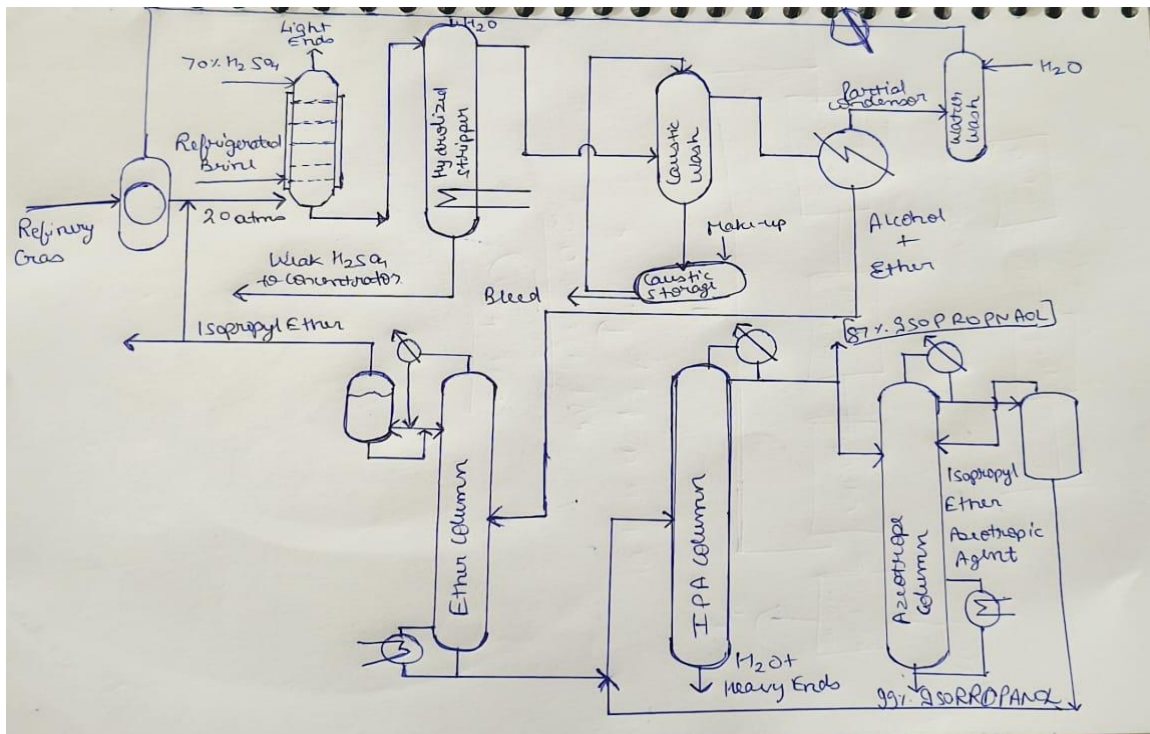 Light
Ends
H2O
70% H2SO4
Refrigerated
Brine
Refinery
Gras
20 atms
Hydrolized
Stripper
Weak H2SO4
to concentrator
Caustic
Wash
Make-up
Caustic
Storage
Bleed
Partial
Condensor
Water
Wash
H2O
Alcohol
+
Ether
[87% ISOPROPNAOL]
Isopropyl Ether
Ether Column
IPA Column
H2O+
Heavy Ends
Azeotrope
Column
Isopropyl
Ether
Azeotropic
Agent
99% ISORROPANOL